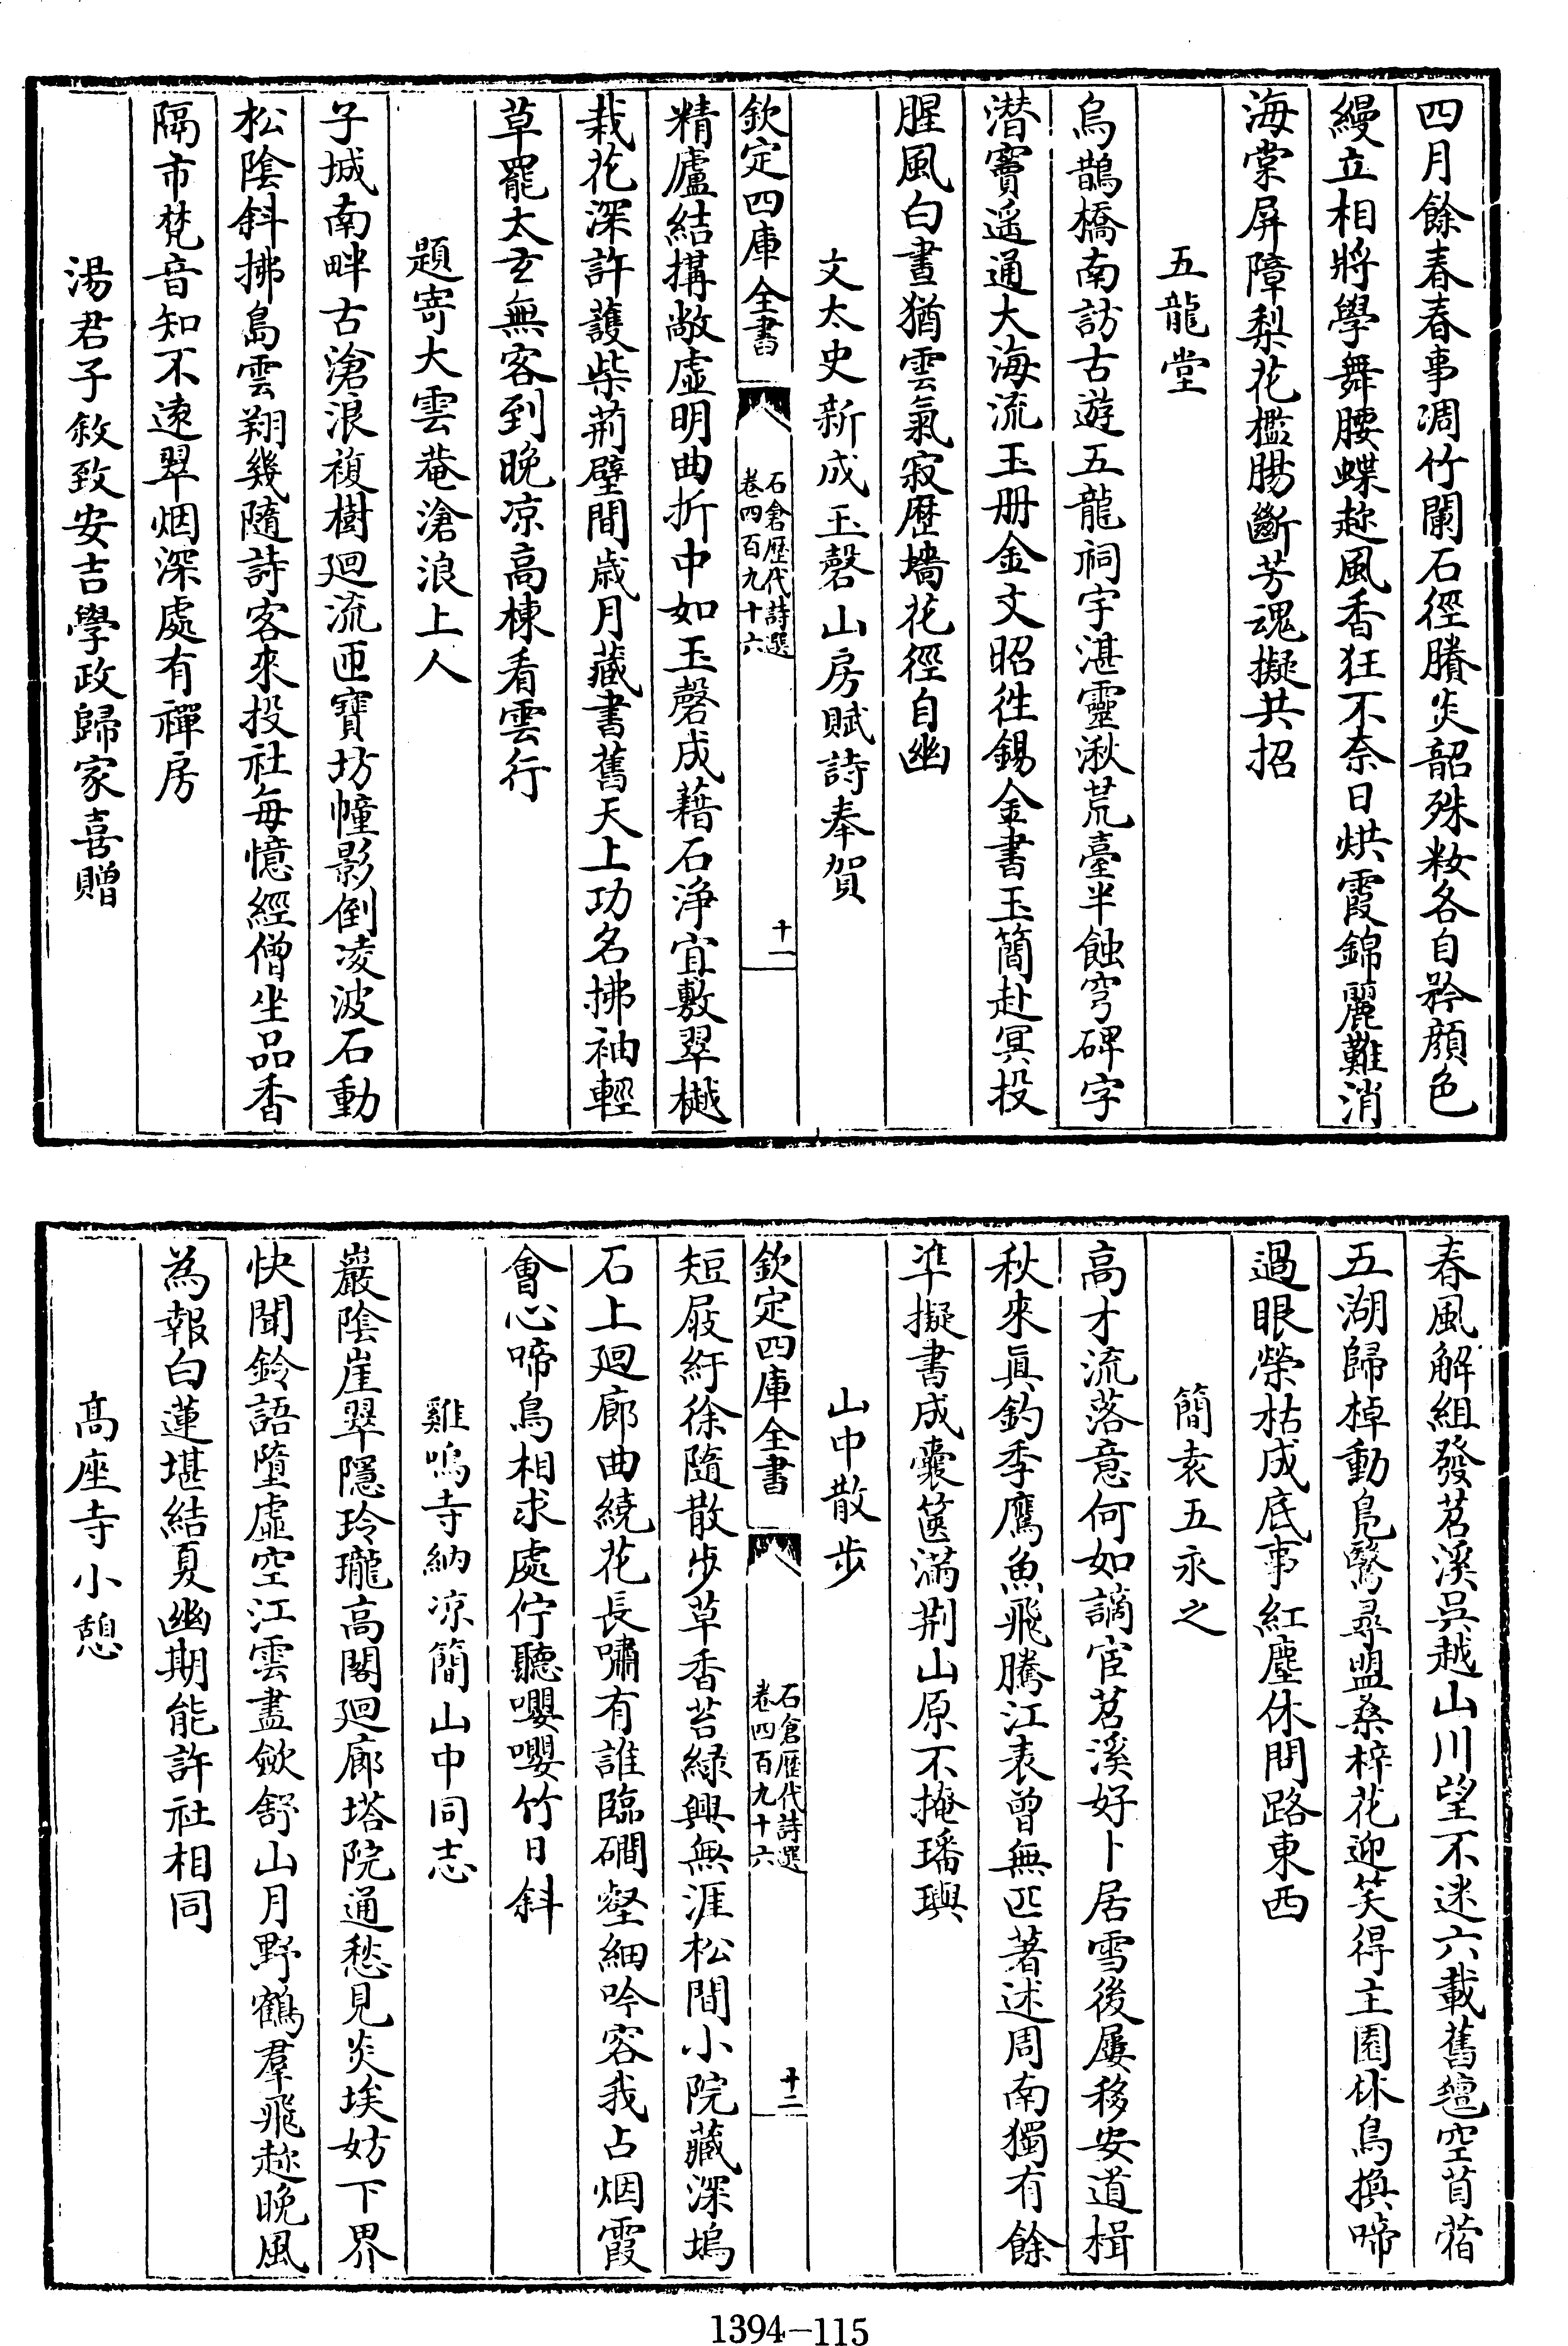 四月餘春春事凋竹闌石徑賸炎韶殊粧各自矜顔色
縵立相將學舞腰蝶趂風香狂不奈日烘霞錦麗難消
海棠屏障梨花檻腸斷芳魂擬共招
五龍堂
烏鵲橋南訪古遊五龍祠宇湛靈湫荒臺半蝕穹碑字
潛竇遥通大海流玉册金文昭徃錫金書玉簡赴冥投
腥風白晝猶雲氣寂歴墻花徑自幽
文太史新成玉磬山房賦詩奉賀
欽定四庫全書
石倉歴代詩選
卷四百九十六
十一
精廬結搆敞虛明曲折中如玉磬成藉石浄宜敷翠樾
栽花深許護柴荊壁間歳月藏書舊天上功名拂袖輕
草罷太𤣥無客到晚凉高棟看雲行
題寄大雲菴滄浪上人
子城南畔古滄浪複樹廻流匝寶坊幢影倒凌波石動
松陰斜拂島雲翔幾隨詩客來投社每憶經僧坐品香
隔市梵音知不逺翠烟深處有禪房
湯君子敘致安吉學政歸家喜贈
春風解組發苕溪呉越山川望不迷六載舊氊空苜蓿
五湖歸棹動鳬鷖尋盟桑梓花迎笑得主園林鳥換啼
過眼榮枯成底事紅塵休問路東西
簡袁五永之
高才流落意何如謫宦苕溪好卜居雪後屢移安道楫
秋來真釣季鷹魚飛騰江表曾無匹著述周南獨有餘
凖擬書成囊篋滿荆山原不掩璠璵
山中散步
欽定四庫全書
石倉歴代詩選
卷四百九十六
十二
短屐紆徐隨散步草香苔緑興無涯松間小院藏深塢
石上廻廊曲繞花長嘯有誰臨磵壑細吟容我占烟霞
會心啼鳥相求處佇聽嚶嚶竹日斜
雞鳴寺納凉簡山中同志
巖陰崖翠隱玲瓏高閣廻廊塔院通愁見炎埃妨下界
快聞鈴語墮虛空江雲盡歛舒山月野鶴羣飛趂晚風
為報白蓮堪結夏幽期能許社相同
髙座寺小憩
1394-115